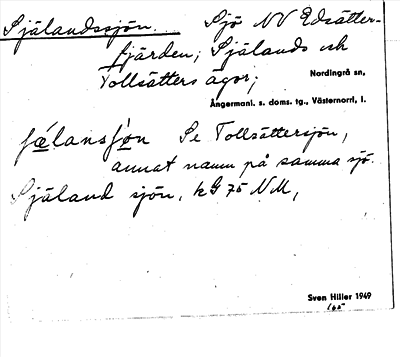 Själandssjön. Sjö NV Edsätter-
fjärden; Själands och
Tollsätters ägor; Nordingrå sn,
Ångermanl. s. doms. tg., Västernorrl, l.
Se Tollsättersjön,
annat namn på samma sjö.
Själand sjön, kG 75 NM,
Sven Hiller 1949